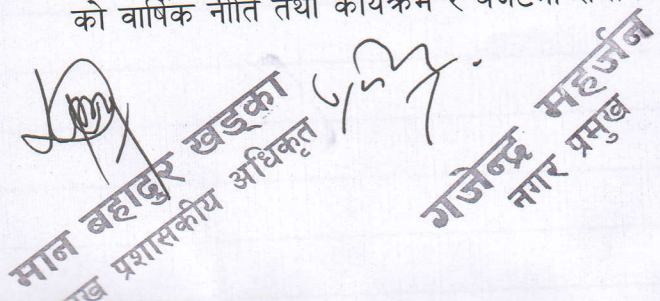 को वार्षिक नीति तथा कार्यक्रम र
मान बहादुर खड्का
प्रशासकीय अधिकृत
गजेन्द्र महर्जन
नगर प्रमुख